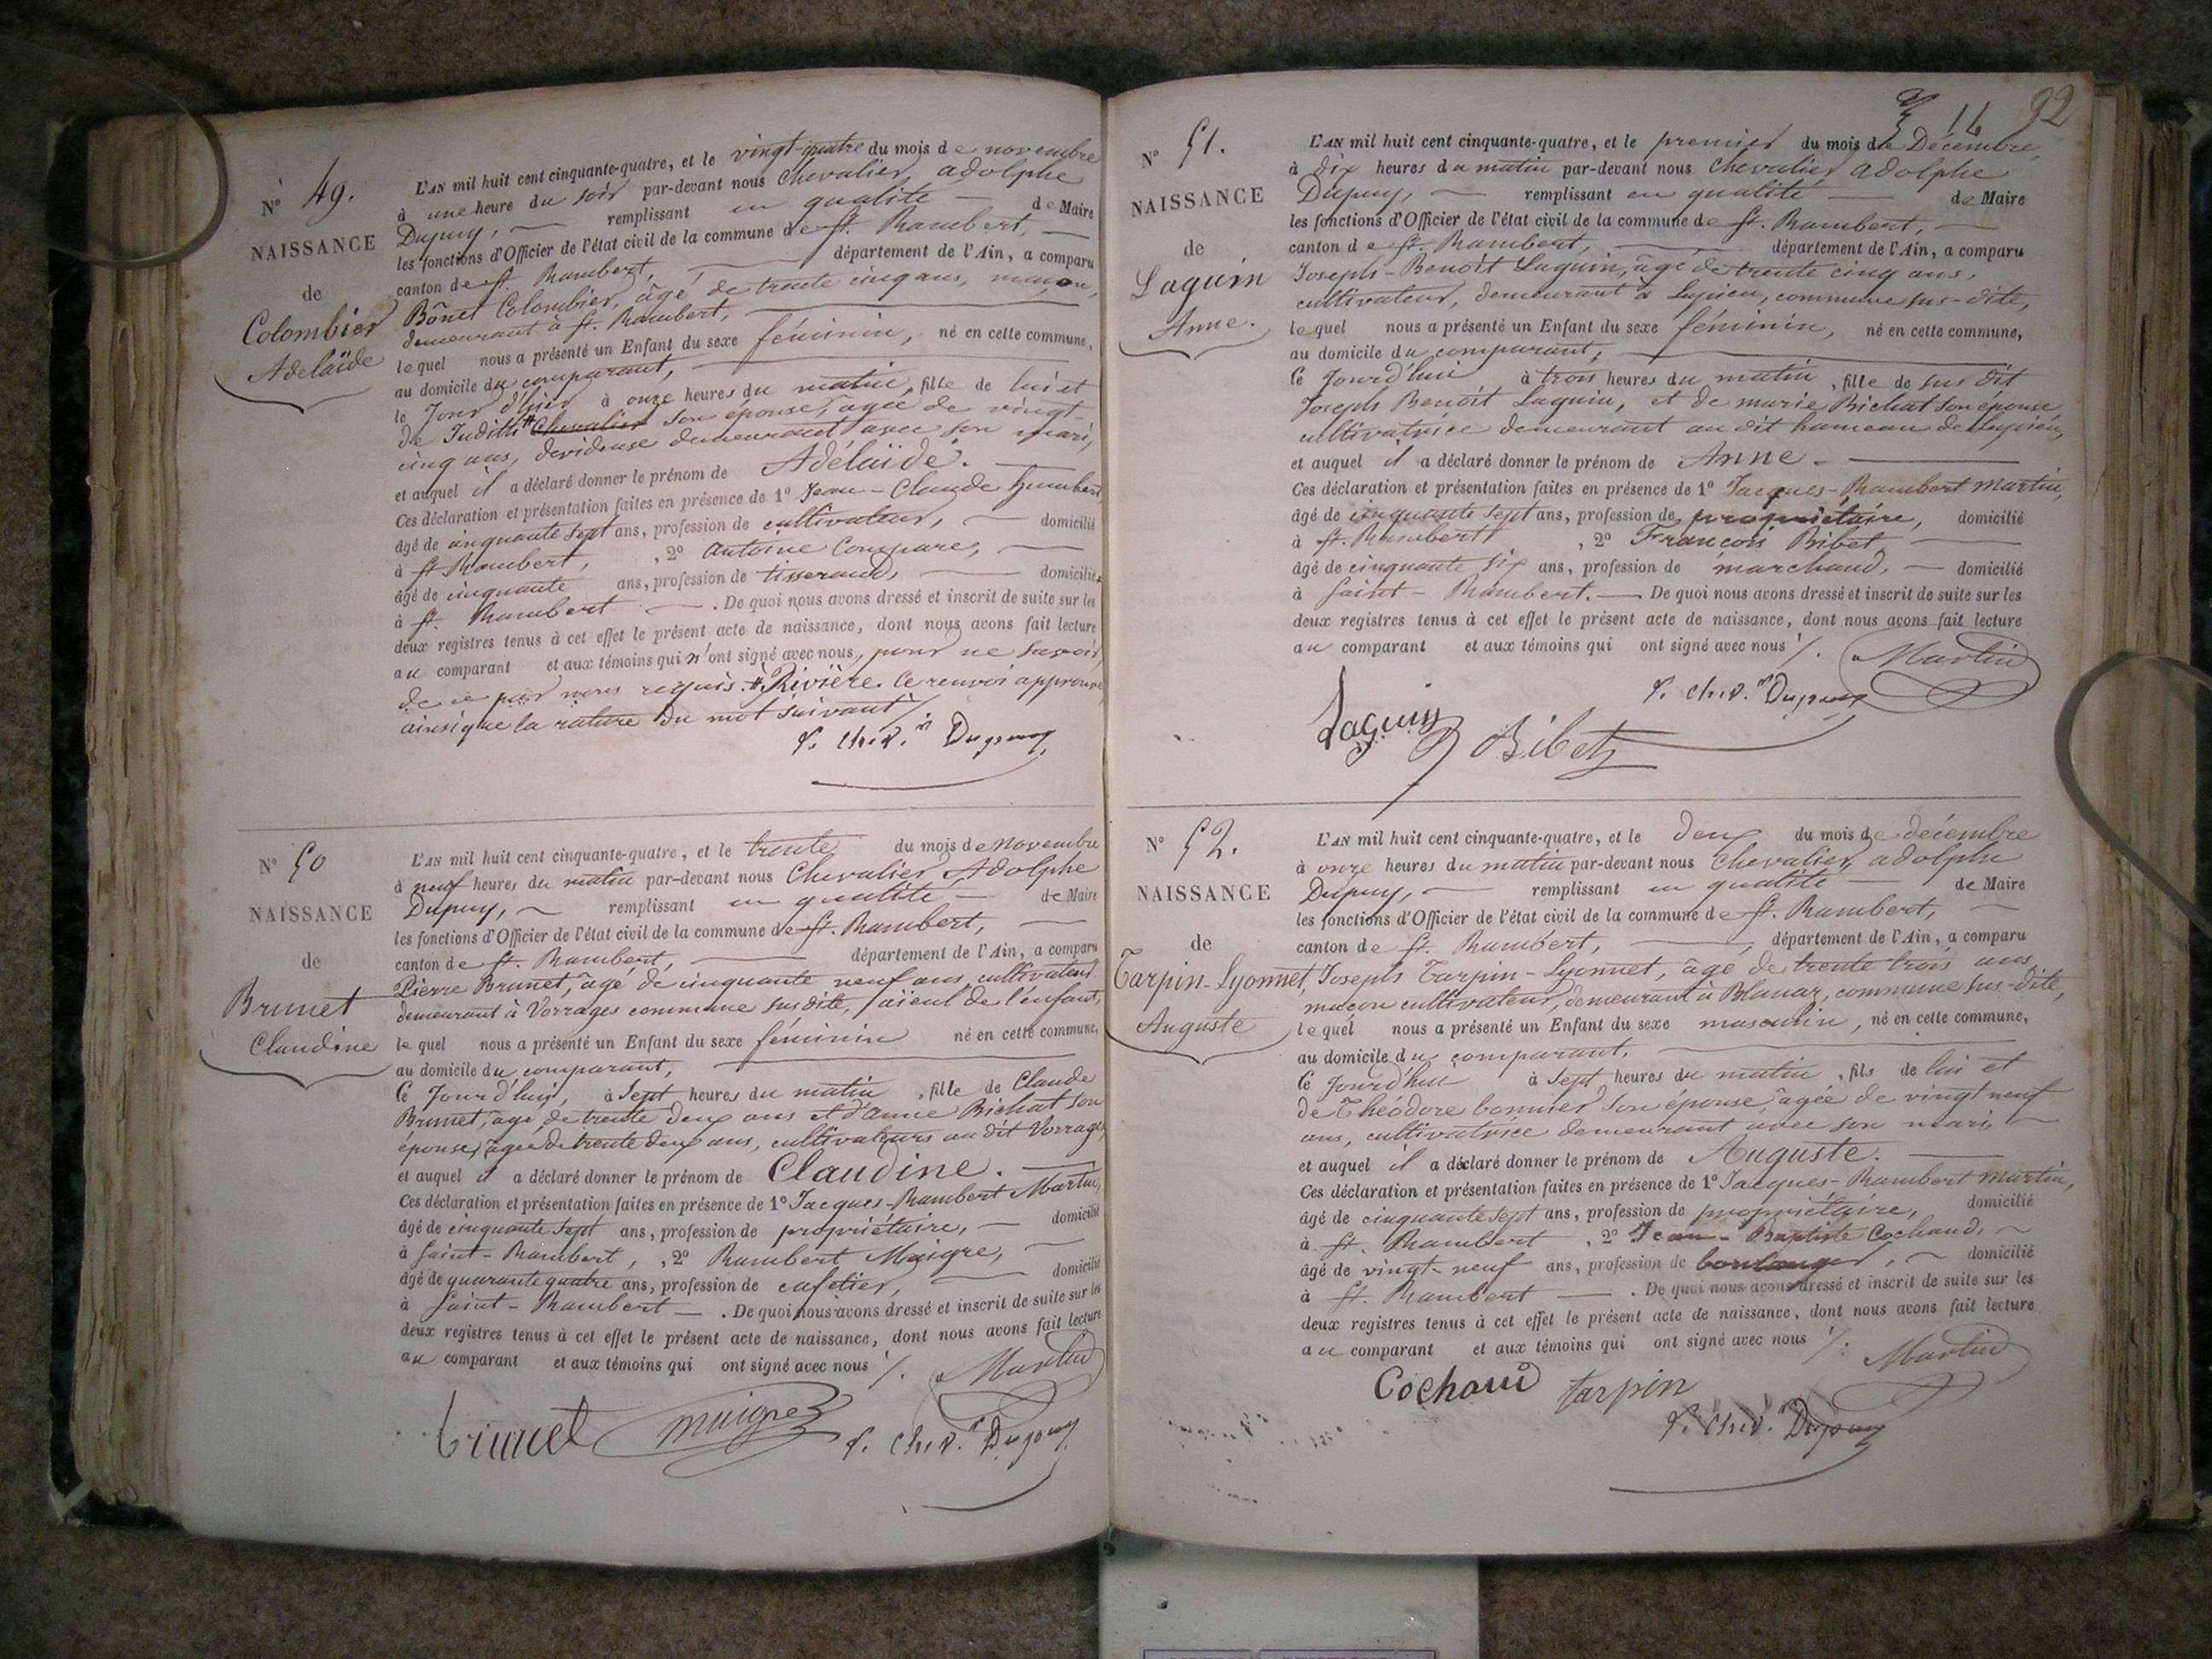 N° 49.
NAISSANCE
de
Colombier
Adelaïde
L'AN mil huit cent cinquante-quatre, et le vingt-quatre du mois de novembre
à une heure du soir par-devant nous Chevalier, adolphe
Dupuy, remplissant en qualité de Maire
les fonctions d'Officier de l'état civil de la commune de St. Rambert,
canton de St. Rambert, département de l'Ain, a comparu
Bônet Colombier, âgé de trente cinq ans, maçon,
demeurant à St. Rambert,
lequel nous a présenté un Enfant du sexe féminin, né en cette commune,
au domicile du comparant,
le jour d'hier à onze heures du matin, fille de lui et
de Judith # Chevalier son épouse, âgée de vingt-
cinq ans, dévideuse demeurant avec son mari,
et auquel il a déclaré donner le prénom de Adélaïde.
Ces déclaration et présentation faites en présence de 1° Jean-Claude Humbert,
âgé de cinquante sept ans, profession de cultivateur, domicilié
à St Rambert, , 2° antoine Compare,
âgé de cinquante ans, profession de tisserand, domiciliés
à St. Rambert . De quoi nous avons dressé et inscrit de suite sur les
deux registres tenus à cet effet le présent acte de naissance, dont nous avons fait lecture
au comparant et aux témoins qui n'ont signé avec nous, pour ne savoir,
de ce par nous requis. # Rivière. Ce renvoi approuvé
ainsi que la rature du mot suivant /.
Dupuy
N° 50
NAISSANCE
de
Brunet
Claudine
L'AN mil huit cent cinquante-quatre, et le trente du mois de novembre
à neuf heures du matin par-devant nous Chevalier, Adolphe
Dupuy, remplissant en qualité de Maire
les fonctions d'Officier de l'état civil de la commune de St. Rambert,
canton de St. Rambert, département de l'Ain, a comparu
Pierre Brunet, âgé de cinquante neuf ans, cultivateur
demeurant à Vorrages commune sus dite, aïeul de l'enfant,
lequel nous a présenté un Enfant du sexe féminin né en cette commune,
au domicile du comparant,
Ce Jourd'hui, à Sept heures du matin, fille de Claude
Brunet, âgé de trente deux ans et d'anne Bichat son
épouse, âgée de trente deux ans, cultivateurs au dit Vorrages,
et auquel il a déclaré donner le prénom de Claudine.
Ces déclaration et présentation faites en présence de 1° Jacques-Rambert Martin,
âgé de cinquante sept ans, profession de propriétaire, domicilié
à Saint-Rambert, , 2° Rambert Maigre,
âgé de quarante quatre ans, profession de cafetier, domicilié
à Saint-Rambert . De quoi nous avons dressé et inscrit de suite sur les
deux registres tenus à cet effet le présent acte de naissance, dont nous avons fait lecture
au comparant et aux témoins qui ont signé avec nous /. Martin
brunet maigre Dupuy
92
N° 51.
NAISSANCE
de
Laguin
Anne.
L'AN mil huit cent cinquante-quatre, et le premier du mois de Décembre,
à dix heures du matin par-devant nous Chevalier adolphe
Dupuy, remplissant en qualité de Maire
les fonctions d'Officier de l'état civil de la commune de St. Rambert,
canton de St. Rambert, département de l'Ain, a comparu
Joseph-Benoît Laguin, âgé de trente cinq ans,
cultivateur, demeurant à Lupieu, commune sus-dite,
lequel nous a présenté un Enfant du sexe féminin, né en cette commune,
au domicile du comparant,
Ce Jourd'hui à trois heures du matin, fille de sus dit
Joseph Benoît Laguin, et de marie Bichat son épouse,
cultivatrice demeurant au dit hameau de Lupieu,
et auquel il a déclaré donner le prénom de Anne.
Ces déclaration et présentation faites en présence de 1° Jacques-Rambert Martin,
âgé de cinquante sept ans, profession de propriétaire, domicilié
à St. Rambert , 2° François Bibet
âgé de cinquante six ans, profession de marchand, domicilié
à Saint-Rambert. De quoi nous avons dressé et inscrit de suite sur les
deux registres tenus à cet effet le présent acte de naissance, dont nous avons fait lecture
au comparant et aux témoins qui ont signé avec nous /. Martin
Dupuy
Laguin Bibet
N° 52.
NAISSANCE
de
Tarpin-Lyonnet,
Auguste
L'AN mil huit cent cinquante-quatre, et le deux du mois de décembre
à onze heures du matin par-devant nous Chevalier, adolphe
Dupuy, remplissant en qualité de Maire
les fonctions d'Officier de l'état civil de la commune de St. Rambert,
canton de St. Rambert, département de l'Ain, a comparu
Joseph Tarpin-Lyonnet, âgé de trente trois ans,
maçon cultivateur, demeurant à Blanaz, commune sus-dite,
lequel nous a présenté un Enfant du sexe masculin, né en cette commune,
au domicile du comparant.
Ce Jourd'hui à sept heures du matin, fils de lui et
de Théodore bonnier son épouse, âgée de vingt neuf
ans, cultivatrice demeurant avec son mari,
et auquel il a déclaré donner le prénom de Auguste.
Ces déclaration et présentation faites en présence de 1° Jacques-Rambert Martin,
âgé de cinquante sept ans, profession de propriétaire, domicilié
à St. Rambert , 2° Jean-Baptiste Cochand,
âgé de vingt-neuf ans, profession de boulanger, domicilié
à St. Rambert . De quoi nous avons dressé et inscrit de suite sur les
deux registres tenus à cet effet le présent acte de naissance, dont nous avons fait lecture
au comparant et aux témoins qui ont signé avec nous /. Martin
Cochand tarpin
Dupuy